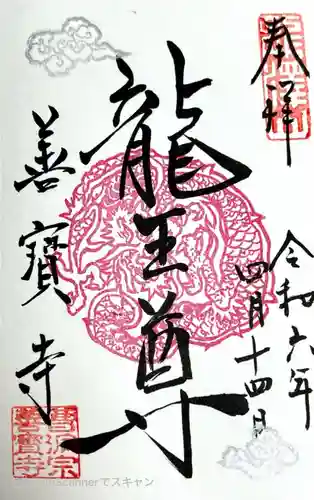 奉拝
令和六年
四月十四日
龍王尊
善寳寺
曹洞宗
善寳寺
Scannerでスキャン